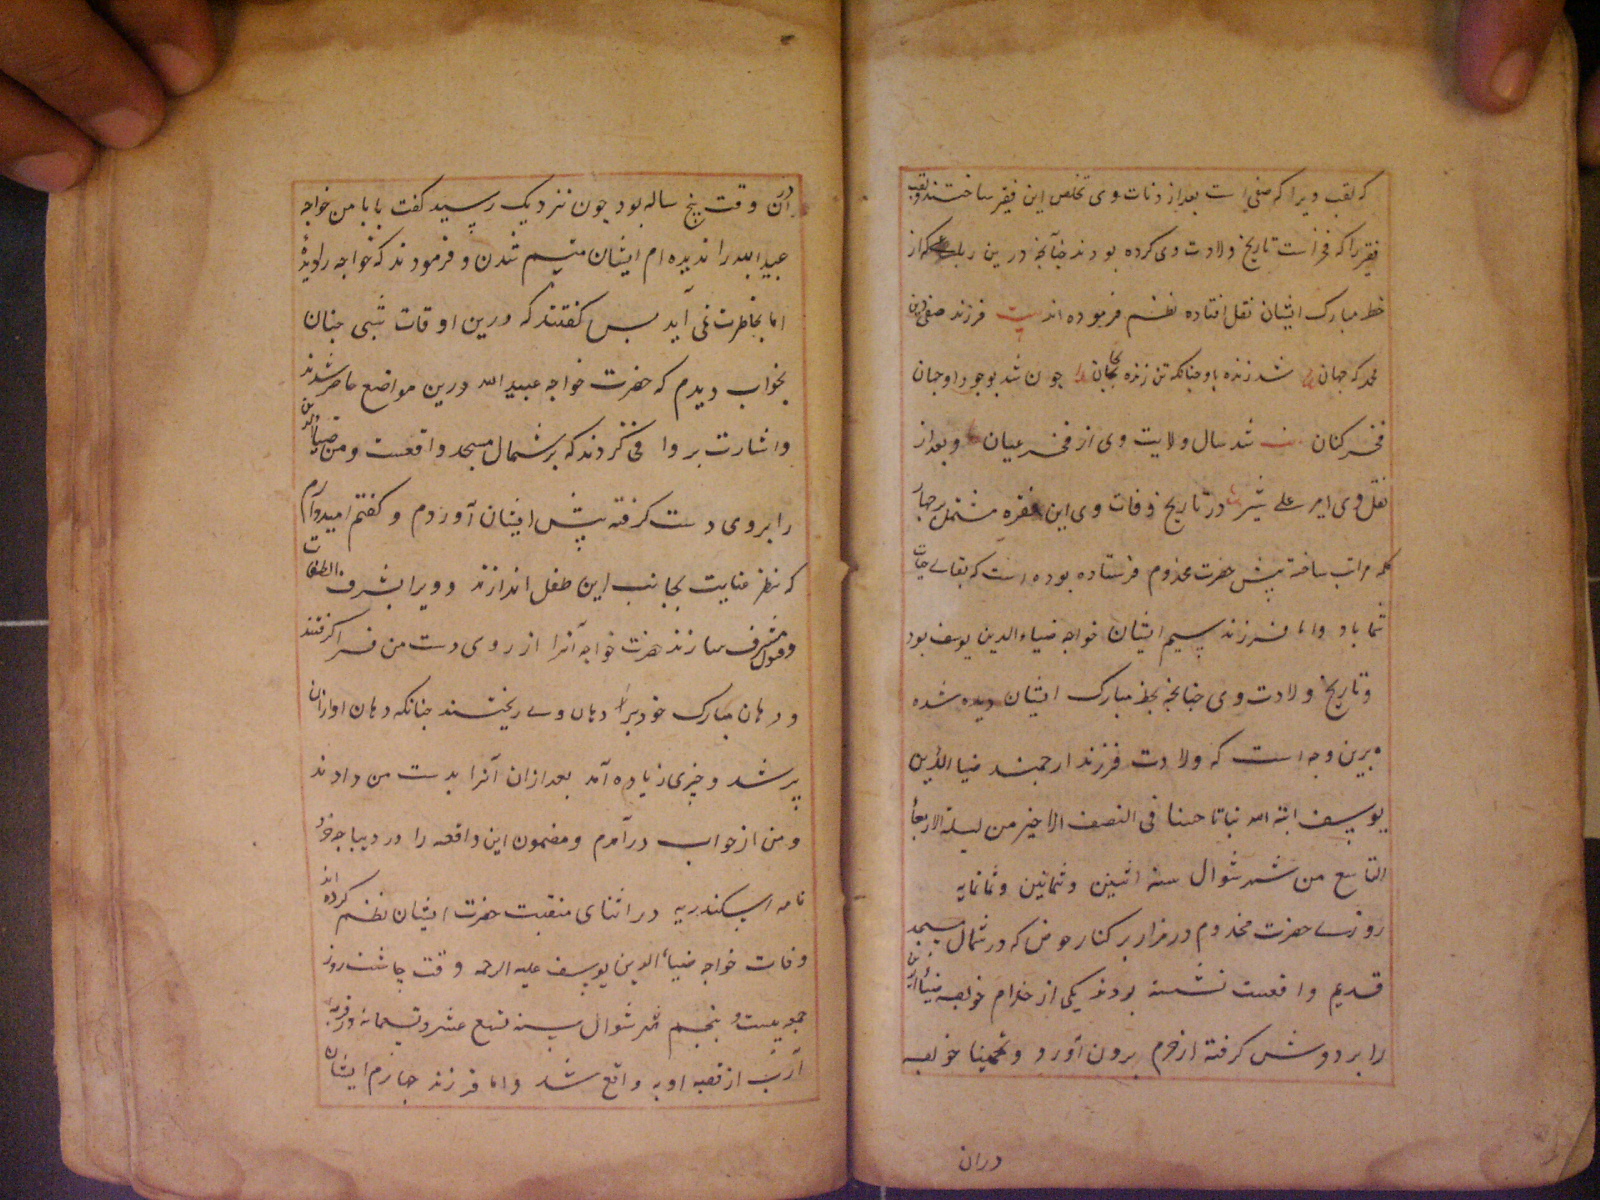 که لقب ویرا که صفی است بعد از وفات وی تخلص این فقیر ساختند و لقب
فقیر را که فخر است تاریخ ولادت وی کرده بودند چنانچه درین رباعی که از
خط مبارک ایشان نقل افتاده نظم فرموده اند بیت فرزند صفی دین
محمد که جهان را شد زنده باو چنانکه تن زنده بجان چون شد بوجود او جهان
فخر کنان شد سال ولایت وی از فخر عیان و بعد از
نقل وی امیر علی شیر در تاریخ وفات وی این فقره مشتمل بر چهار
کلمه مراتب ساخته پیش حضرت مخدوم فرستاده بوده است که بقای حیات
شما باد واما فرزند سیم ایشان خواجه ضیاءالدین یوسف بود
وتاریخ ولادت وی چنانچه بخط مبارک ایشان دیده شده
برین وجه است که ولادت فرزند ارجمند ضیا الدین
یوسف انبته الله نباتا حسنا فی النصف الاخیر من لیلة الاربعا
التاسع من شهر شوال سنه اثنین وثمانین وثمانمایه
روزی حضرت مخدوم در مزار بر کنار حوض که در شمال مسجد
قدیم واقعست نشسته بودند یکی از خدام خواجه ضیاءالدین
را بر دوش گرفته از حرم برون آورد وتخمینا خواجه
دران
دران وقت پنج ساله بود چون نزدیک رسید گفت بابا من خواجه
عبید الله را ندیده ام ایشان متبسم شدن و فرمودند که خواجه را دیدهٔ
اما بخاطرت نمی آید پس گفتند که درین اوقات شبی چنان
بخواب دیدم که حضرت خواجه عبید الله درین مواضع حاضر شدند
واشارت بر وا می کردند که بر شمال مسجد واقعست ومن ضیاالدین
را بروی دست گرفته پیش ایشان آوردم و گفتم امیدوارم
که نظر عنایت بجانب این طفل اندازند و ویرا بشرف التفات
وقبول مشرف سازند حضرت خواجه آنرا از روی دست من فرا گرفتند
ودهان مبارک خود بر دهان وی ریختند چنانکه دهان او ازان
پر شد و چیزی زیاده آمد بعد ازان آنرا بدست من دادند
ومن از خواب درآمدم ومضمون این واقعه را در دیباجه خرد
نامه اسکندریه در اثنای منقبت حضرت ایشان نظم کرده اند
وفات خواجه ضیاءالدین یوسف علیه الرحمه وقت چاشت روز
جمعه بیست و پنجم شهر شوال سنه تسع عشر وتسعمائه در قریه
از قصبه اوبه واقع شد واما فرزند چهارم ایشان